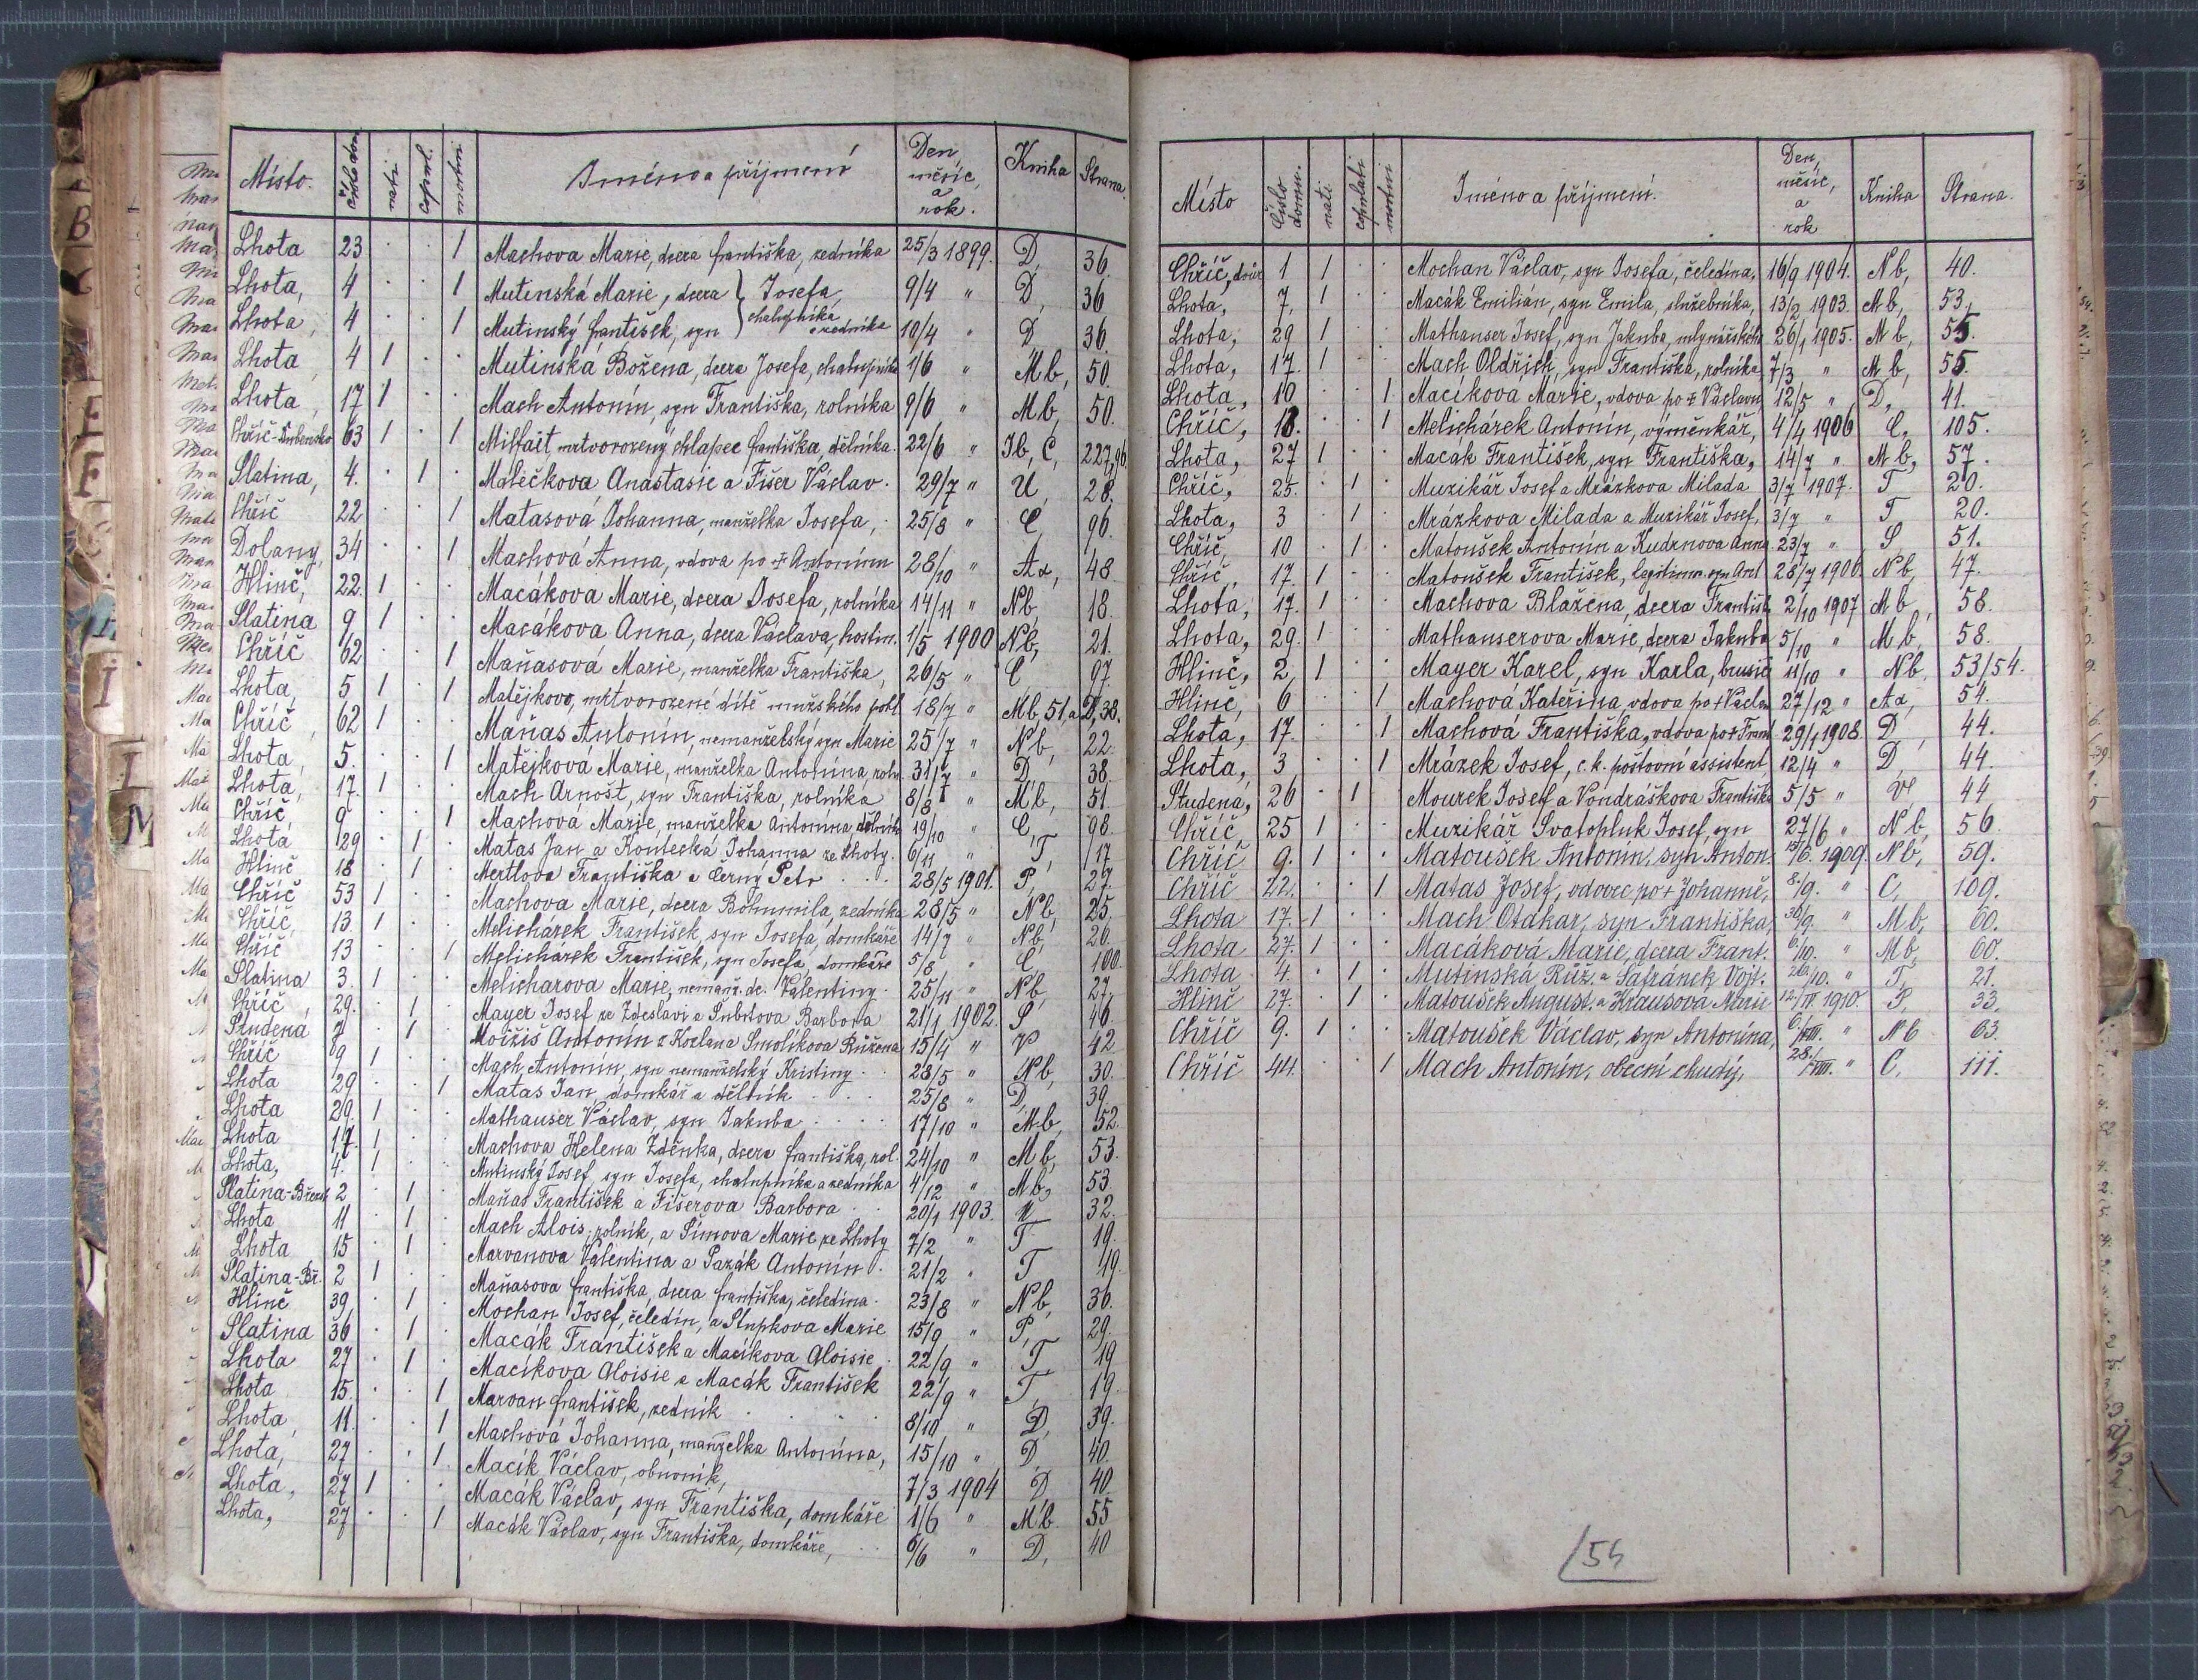 Místo. číslo dom. nati. copul. mortui. Jméno a příjmení Den, měsíc, a rok. Kniha Strana
Lhota 23 . . 1 Machova Marie, dcera františka, zedníka 25/3 1899. D, 36.
Lhota, 4 . . 1 Mutinská Marie, dcera } Josefa, 9/4 " D, 36
Lhota, 4 . . 1 Mutinský františek, syn } chalupníka a zedníka 10/4 " D, 36.
Lhota, 4 1 . . Mutinska Božena, dcera Josefa, chalupníka 1/6 " Mb, 50.
Lhota, 17 1 . . Mach Antonín, syn Františka, rolníka 9/6 " Mb, 50.
63 1 . 1 Milfait, mrtvorozený chlapec františka, dělníka. 22/6 " Ib, C, 227, 96.
Slatina, 4. . 1 . Matéčkova Anastasie a Fišer Václav. 29/7 " U, 28.
Chříč 22 . . 1 Matasová Johanna, manželka Josefa, 25/8 " C 96.
Dolany, 34 . . 1 Machová Anna, vdova po + Antonínu 28/10 " Aa, 48
Hlinč, 22. 1 . . Macákova Marie, dcera Josefa, rolníka 14/11 " Nb, 18.
Slatina 9 1 . . Macákova Anna, dcera Václava, hostin. 1/5 1900 Nb, 21.
Chříč 62 . . 1 Maňasová Marie, manželka Františka, 26/5 " C 97.
Lhota, 5 1 . 1 Matějkovo, mrtvorozené dítě mužského pohl. 18/7 " Mb, 51. a D, 38.
Chříč, 62 1 . . Maňas Antonín, nemanželský syn Marie 25/7 " Nb, 22.
Lhota, 5. . . 1 Matějková Marie, manželka Antonína, roln. 31/7 " D, 38.
Lhota, 17. 1 . . Mach Arnošt, syn Františka, rolníka 8/8 " Mb, 51.
Chříč, 9 . . 1 Machova Marie, manželka Antonína, dělník 19/10 " C, 98.
Lhota, 29 . 1 . Matas Jan a Koutecká Johanna ze Lhoty. 6/11 " T, 17
Hlinč 18 . 1 . Mertlova Františka a Černý Petr . . . 28/5 1901. P, 27.
Chříč 53 1 . . Machova Marie, dcera Bohumila, zedníka 28/5 " Nb, 25.
Chříč, 13. 1 . . Melichárek František, syn Josefa, domkáře 14/7 " Nb, 26.
Chříč 13 . . 1 Melichárek František, syn Josefa, domkáře 5/8 " C, 100.
Slatina 3. 1 . . Melicharova Marie, nemanž. dc. Valentiny. 25/11 " Nb, 27.
Chříč, 29. . 1 . Mayer Josef ze Zdeslavi a Subrtova Barbora 21/1 1902. S 46.
Studená 7 . 1 . Mojžiš Antonín z Kozlana Smolíkova Růžena 15/4 " V 42
Chříč 9 1 . . Mach Antonín, syn nemanželský Kristiny . . 28/5 " Nb, 30.
Lhota 29 . . 1 Matas Jan, domkář a dělník . . . 25/8 " D, 39.
Lhota 29. 1 . . Mathauser Václav, syn Jakuba . . . . 17/10 " Mb, 52.
Lhota 17. 1 . . Machova Helena Zděnka, dcera františka, rol. 24/10 " Mb, 53.
Lhota, 4. 1 . . Mutinský Josef, syn Josefa, chalupníka a zedníka 4/12 " Mb, 53.
2 . 1 . Maňas František a Fišerova Barbora . . 20/1 1903. U 32.
Lhota 11 . 1 . Mach Alois, rolník, a Šímova Marie ze Lhoty 7/2 " T 19.
Lhota 15 . 1 . Marvanova Valentina a Pazák Antonín . 21/2 " T 19.
Slatina-Bř. 2 1 . . Maňasova františka, dcera františka, čeledína. 23/8 " Nb, 36.
Hlinč 39 . 1 . Mochan Josef, čeledín, a Stupkova Marie 15/9 " P, 29.
Slatina 36 . 1 . Macák František a Macíkova Aloisie. 22/9 " T 19
Lhota 27 . 1 . Macíkova Aloisie a Macák František 22/9 " T, 19.
Lhota 15. . . 1 Marvan františek, zedník . . . . 8/10 " D, 39.
Lhota, 11. . . 1 Machová Johanna, manželka Antonína, 15/10 " D, 40.
Lhota, 27 . . 1 Macík Václav, obuvník, 7/3 1904 D, 40.
Lhota, 27 1 . . Macák Václav, syn Františka, domkáře 1/6 " Mb. 55
Lhota, 27 . . 1 Macák Václav, syn Františka, domkáře, . . 6/6 " D, 40
Místo Číslo domu. nati copulati mortui Jméno a příjmení. Den, měsíc, a rok Kniha Strana.
Chříč, dvůr 1 1 . . Mochan Václav, syn Josefa, čeledína, 16/9 1904. Nb, 40.
Lhota, 7, 1 . . Macák Emilián, syn Emila, služebníka, 13/2 1903. Mb, 53.
Lhota, 29 1 . . Mathauser Josef, syn Jakuba, mlynářského 26/1 1905. Nb, 55.
Lhota, 17. 1 . . Mach Oldřich, syn Františka, rolníka 7/3 " Mb, 55.
Lhota, 10 . . 1 Macíkova Marie, vdova po + Václavu 12/5 " D, 41.
Chříč, 18. . . 1 Melichárek Antonín, výměnkář, 4/4 1906 C, 105.
Lhota, 27 1 . . Macák František, syn Františka, 14/7 " Mb, 57.
Chříč, 25. . 1 . Muzikář Josef a Mrázkova Milada 3/7 1907. T 20.
Lhota, 3 . 1 . Mrázkova Milada a Muzikář Josef, 3/7 " T 20.
Chříč, 10 . 1 . Matoušek Antonín a Kudrnova Anna. 23/7 " S 51.
Chříč, 17. 1 . . Matoušek František, legitim. syn Ant 28/7 1906 Nb, 47.
Lhota, 17. 1 . . Machova Blažena, dcera Františ. 2/10 1907 Mb, 58.
Lhota, 29. 1 . . Mathauserova Marie, dcera Jakuba 5/10 " Mb, 58.
Hlinč, 2, 1 . . Mayer Karel, syn Karla, 11/10 " Nb, 53/54.
Hlinč, 6 . . 1 Machová Kateřina, vdova po + Václav 27/12 " Aa, 54.
Lhota, 17. . . 1 Machová Františka, vdova po + Frant. 29/1 1908. D, 44.
Lhota, 3 . . 1 Mrázek Josef, c. k. poštovní assistent, 12/4 " D, 44.
Studená, 26 . 1 . Mourek Josef a Vondráškova Františka 5/5 " V 44
Chříč, 25 1 . . Muzikář Svatopluk Josef, syn 27/6 " Nb, 56.
Chříč 9. 1 . . Matoušek Antonín, syn Anton. 15/6. 1909. Nb, 59.
Chříč 22. . . 1 Matas Josef, vdovec po + Johanně, 8/9. " C, 109.
Lhota 17. 1 . . Mach Otakar, syn Františka, 30/9. " Mb, 60.
Lhota 27. 1 . . Macáková Marie, dcera Frant. 6/10. " Mb, 60.
Lhota 4. . 1 . Mutinská Růž. a Šafránek Vojt. 26/10. " T, 21.
Hlinč 27. . 1 . Matoušek August. a Krausova Marie 12/IV. 1910. P, 33.
Chříč 9. 1 . . Matoušek Václav, syn Antonína, 6/VIII. " Nb 63.
Chříč 44. . . 1 Mach Antonín, obecní chudý, 28./VIII. " C, 111.
/54
B
E
F
I
L
M